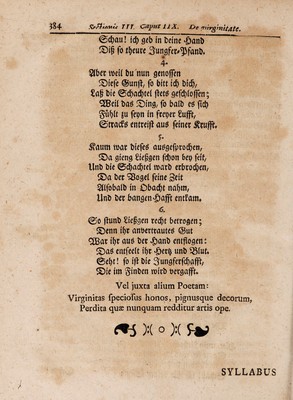 384 Sectionis III. Caput IIX. De virginitate.
Schau! ich geb in deine Hand
Diß so theure Jungfer-Pfand.
4.
Aber weil du nun genossen
Diese Gunst, so bitt ich dich,
Laß die Schachtel stets geschlossen;
Weil das Ding, so bald es sich
Fühlt zu seyn in freyer Lufft,
Stracks entreist aus seiner Krufft.
5.
Kaum war dieses ausgesprochen,
Da gieng Ließgen schon bey seit,
Und die Schachtel ward erbrochen,
Da der Vogel seine Zeit
Alsobald in Obacht nahm,
Und der bangen-Hafft entkam.
6.
So stund Ließgen recht betrogen;
Denn ihr anvertrautes Gut
War ihr aus der Hand entflogen:
Das entseelt ihr Hertz und Blut.
Seht! so ist die Jungferschafft,
Die im Finden wird vergafft.
Vel juxta alium Poetam:
Virginitas speciosus honos, pignusque decorum,
Perdita quæ nunquam redditur artis ope.
SYLLABUS